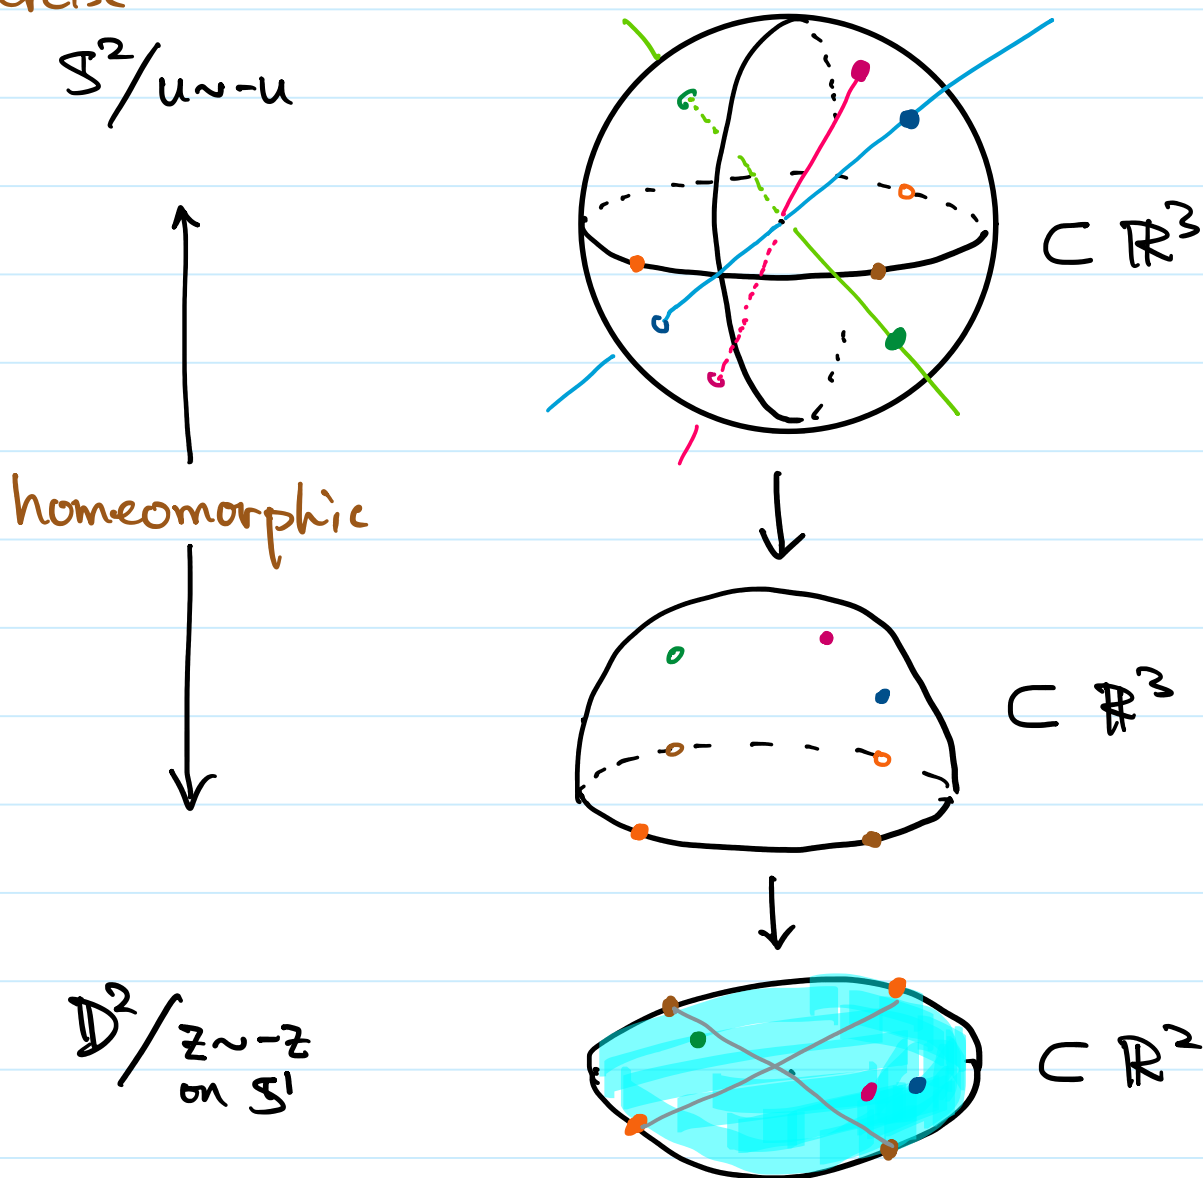 S²/u~-u
⊂ ℝ³
homeomorphic
⊂ ℝ³
D²/z~-z
on S¹
⊂ ℝ²